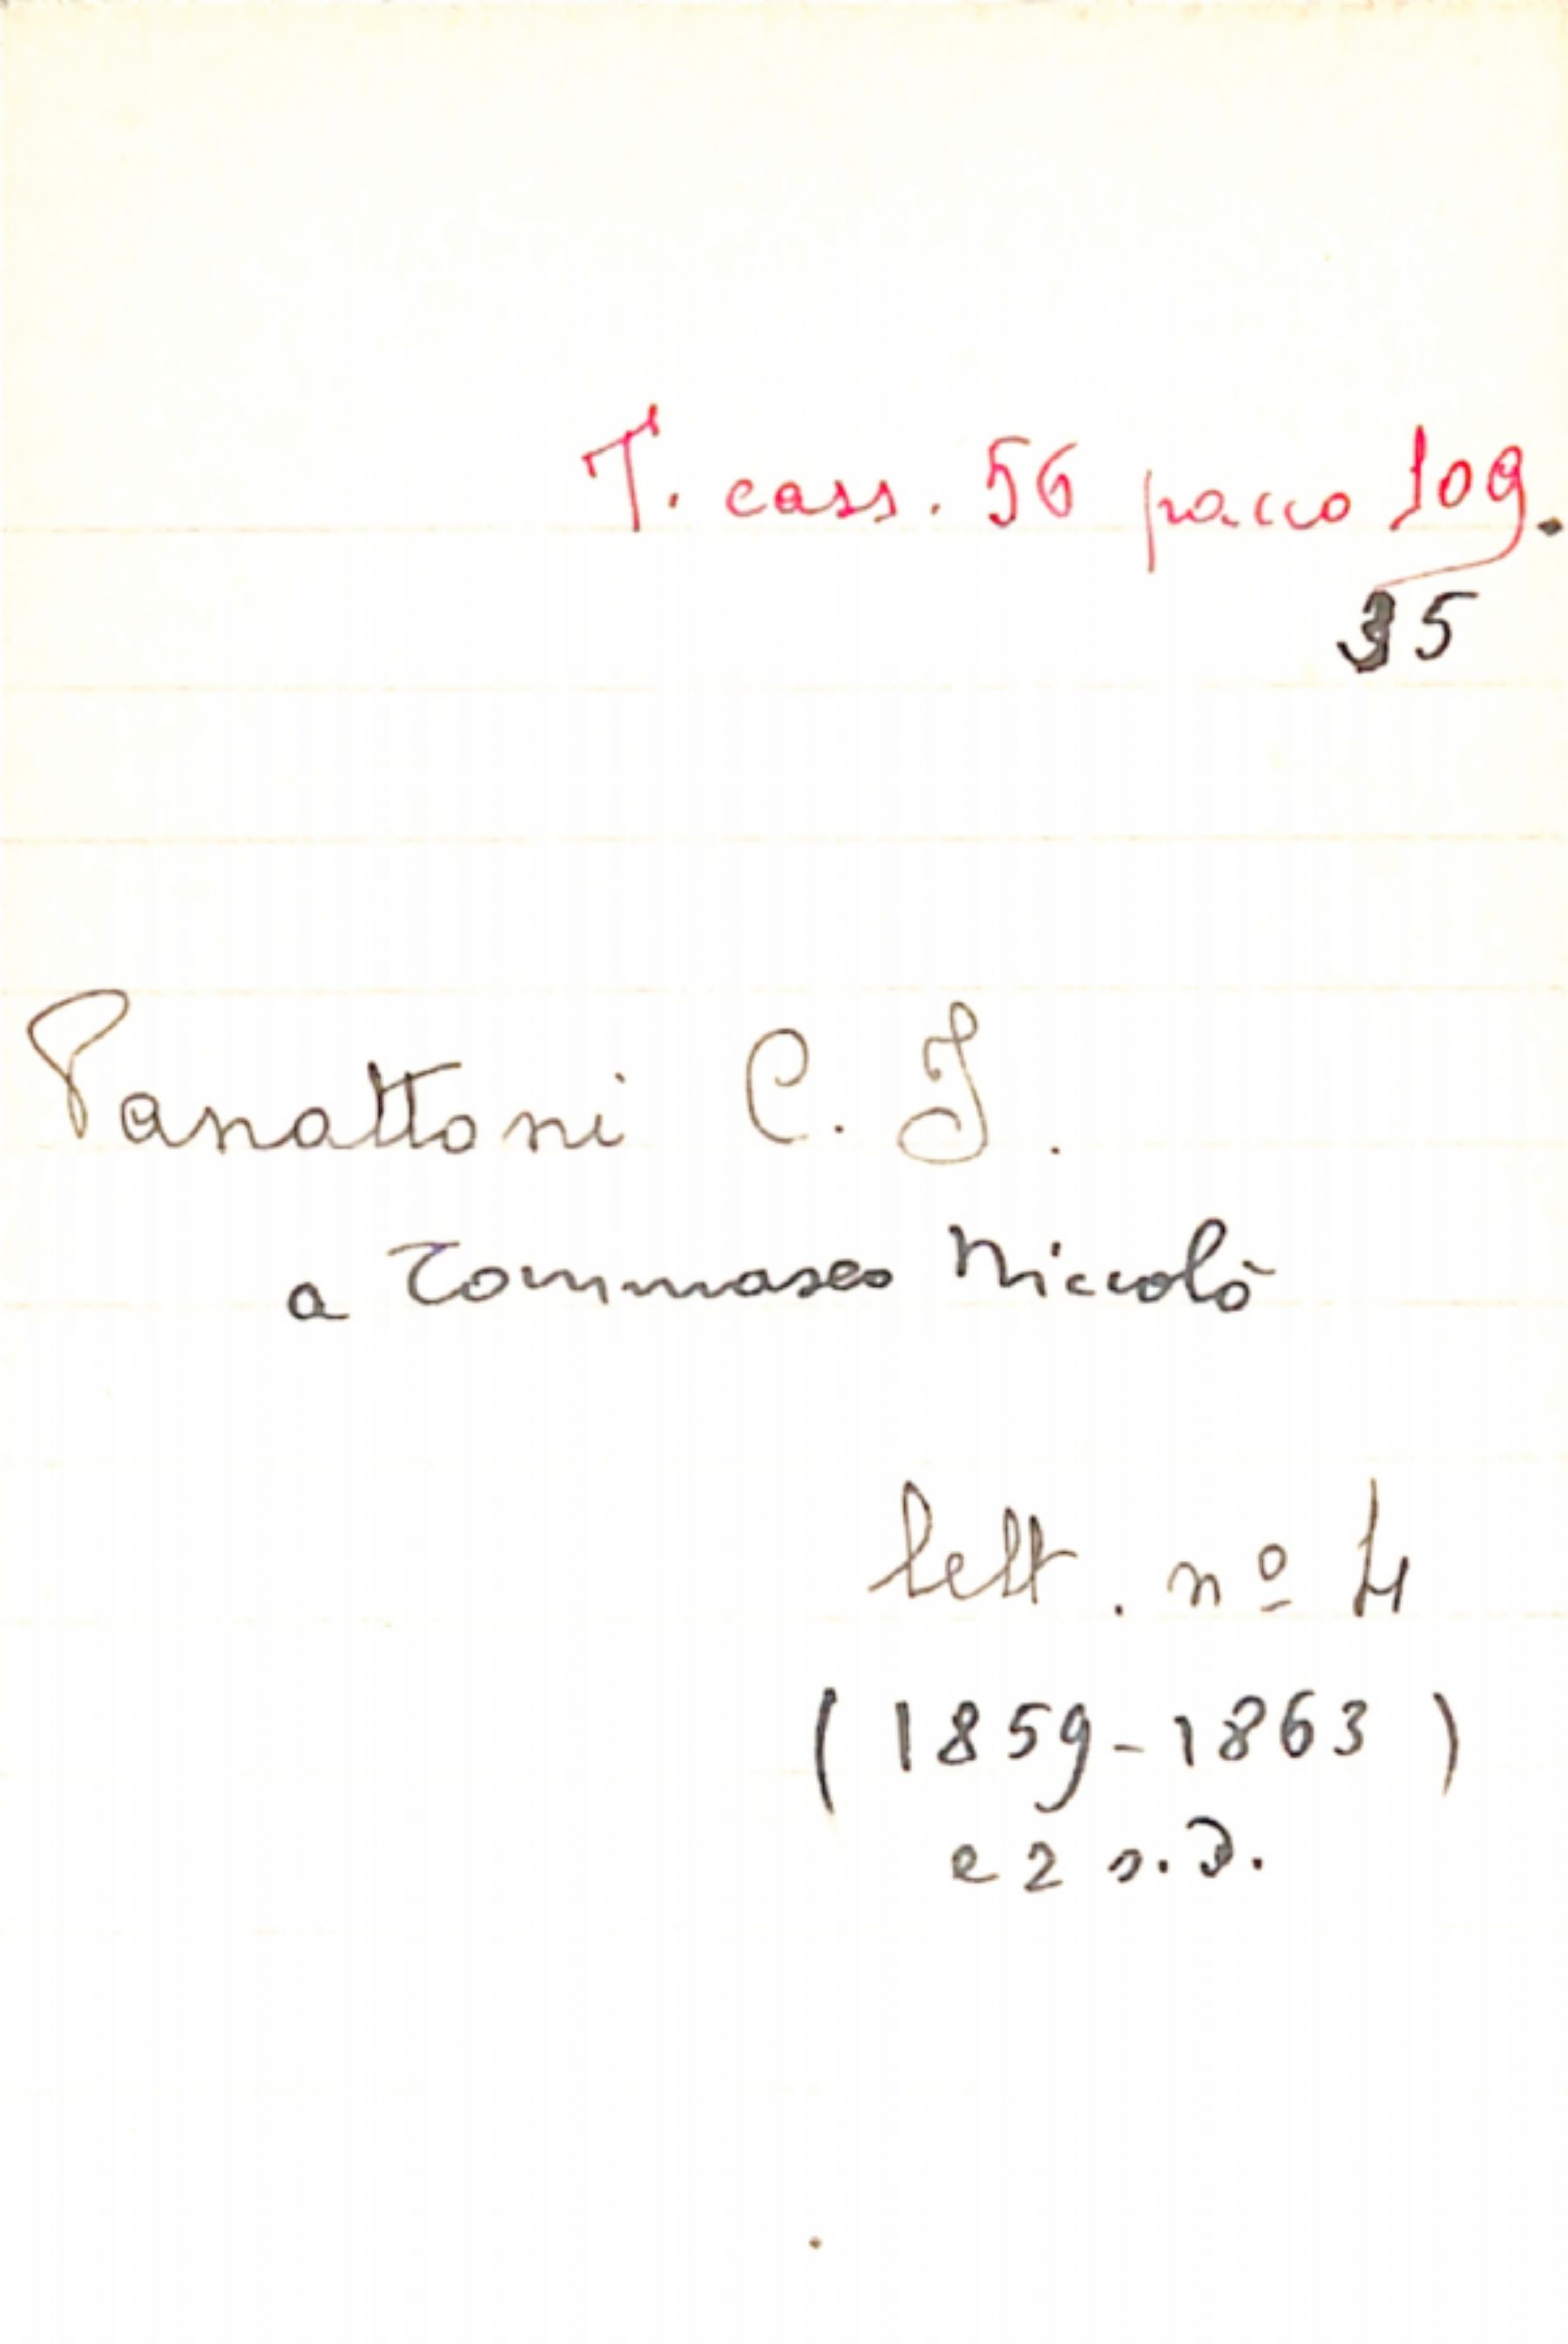 T. cass. 56 pacco 109.
35
Panattoni C. J.
a Tommaseo Niccolò
lett. nº 4
(1859-1863)
e 2 s.d.